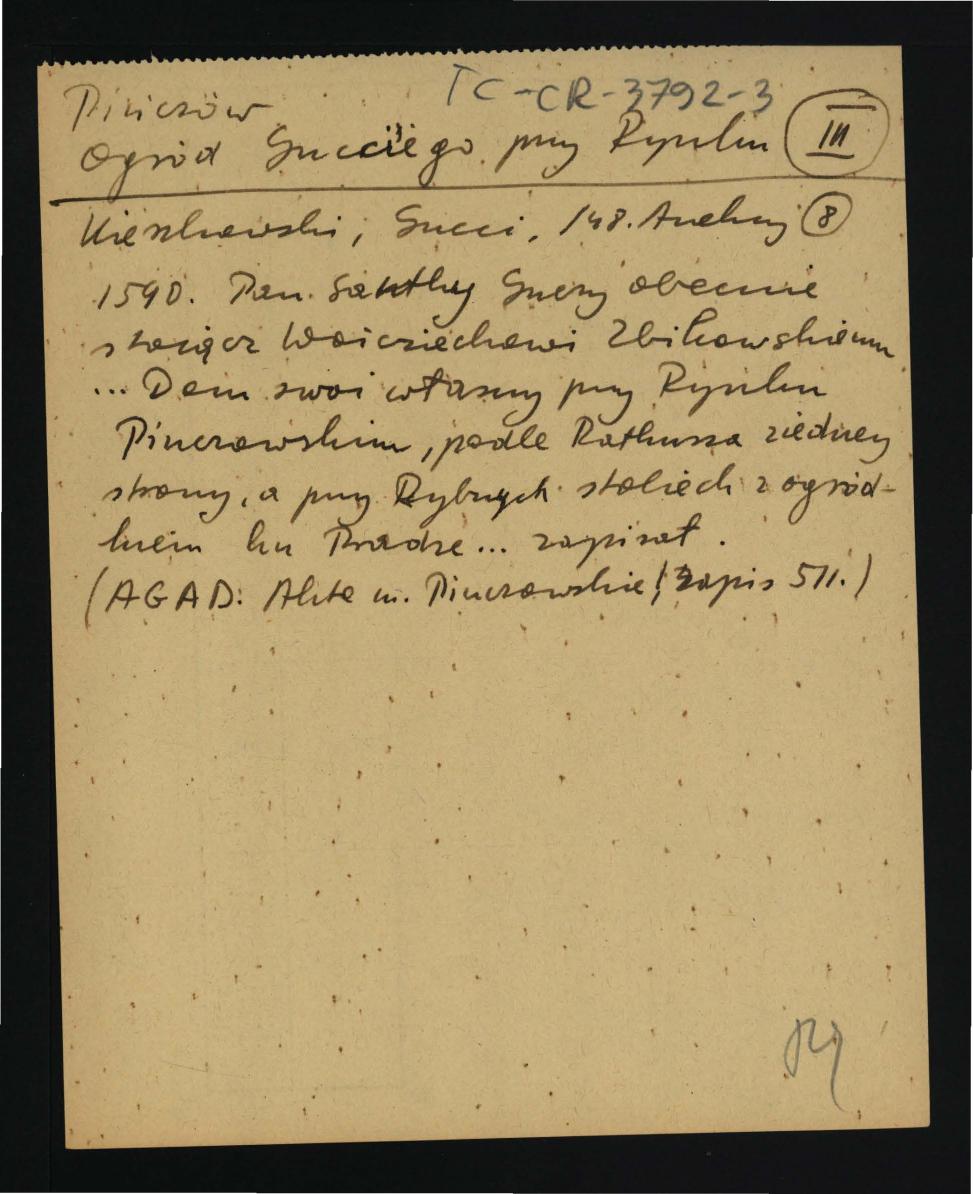 TC-CR-3792-3
Pińczów
Ogród Gucciego przy Rynku III
Kieszkowski, Gucci, 148. Aneksy 8
1590. Pan Santhy Guczy obecnie
stoiącz Woiciechowi Zbikowskiemu
... Dom swoi własny przy Rynku
Pinczowskim, podle Rathusza ziedney
strony, a przy Rybnych stoliech z ogród-
kiem ku Pradze... zapisał.
(AGAD. Akta m. Pinczowskie! zapis 511.)